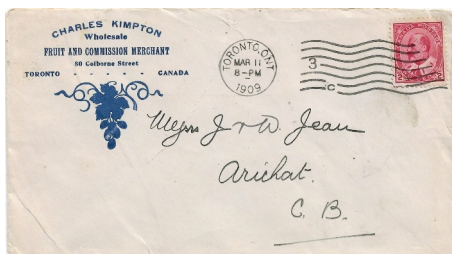 CHARLES KIMPTON
Wholesale
FRUIT AND COMMISSION MERCHANT
80 Colborne Street
TORONTO - - - - - CANADA
TORONTO, ONT
MAR 11
8-PM
1909
3
c
Messrs J & W Jean
Arichat.
C. B.